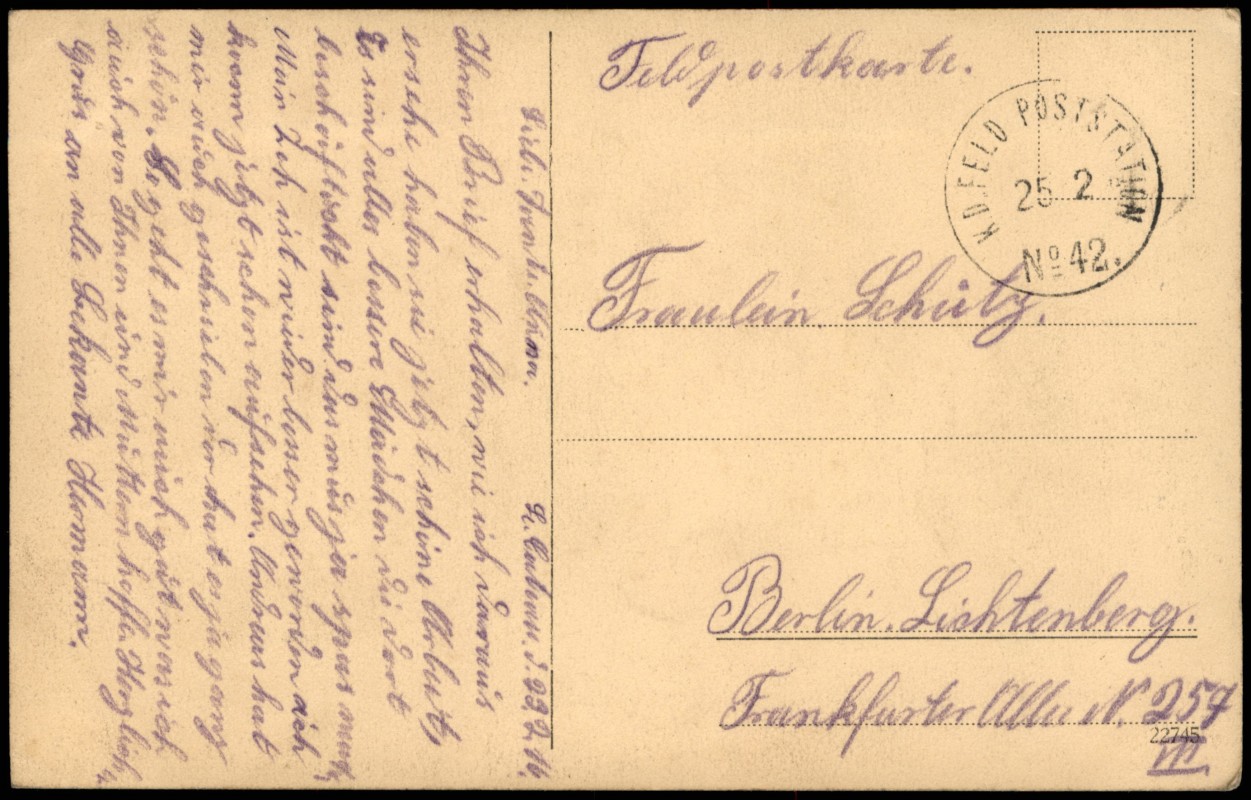 Feldpostkarte.
KD. FELD POSTSTATION
25 2
No 42.
Fraulein. Schülz.
Berlin. Lichtenberg.
Frankfurter Allee N. 257
III.
22745
d. 23.2.16.
Lieb. Anna.
Ihrem Brief erhalten, wie ich daraus
ersehe haben sie jetzt schöne
Es sind alles bessere Mädchen die dort
beschäftickt sind das mus ja spas mach,
Mein Zeh ist wider besser geworden ich
kvenn jetzt schon aufsehen. Andreas hat
mir auch geschrieben der hat es ja ganz
schön. So geht es mir noch gut was ich
auch von Ihnen und Muttern hoffe. Hezlich,
Grus an alle Bekante Hermann.